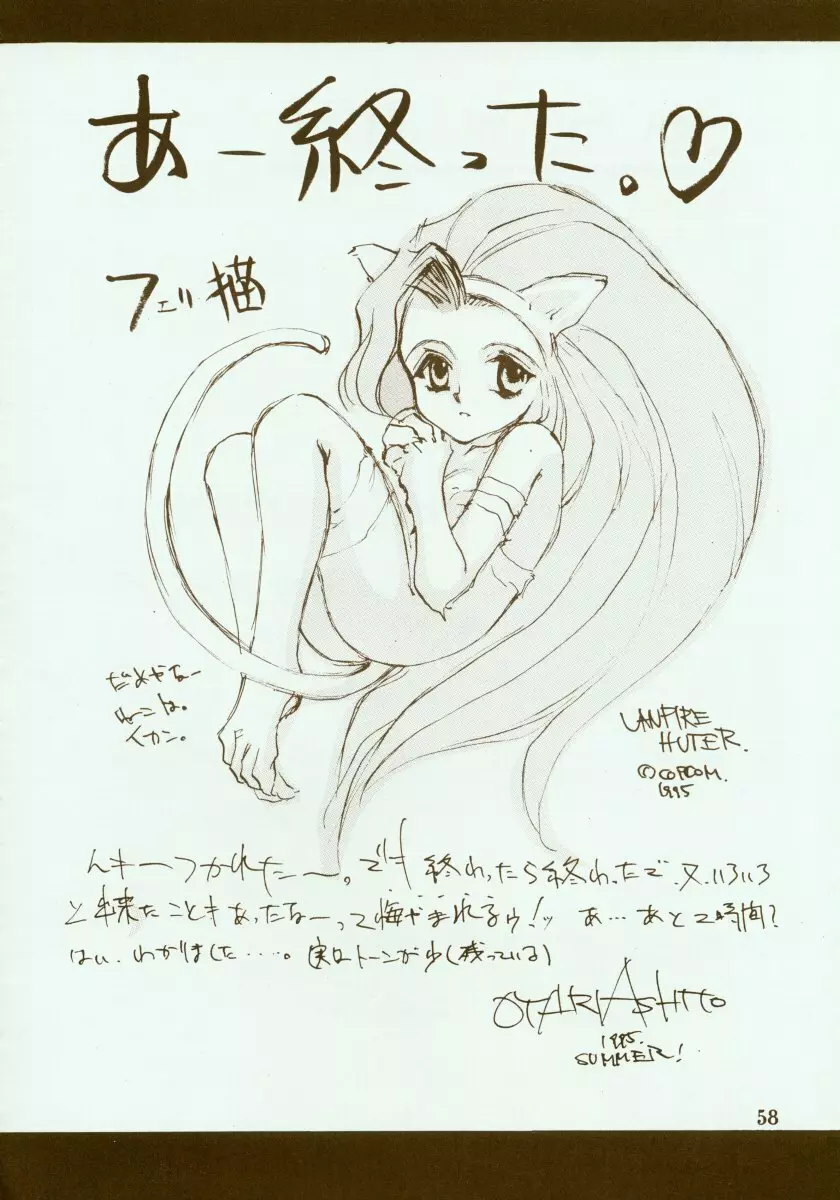 あー終った。♡
フェリ猫
だめやなー
ねこは。
イカン。
VANPIRE
HUTER.
©COPCOM.
1995
んきーつかれたー。でも終わったら終わったで、又いろいろ
と出来たこともあったなーって悔やまれるゥ!ッ あ…あと2時間?
はい、わかりました……。実はトーンがゆ(残っている)
OTARIASHITO
1995.
SUMMER!
58